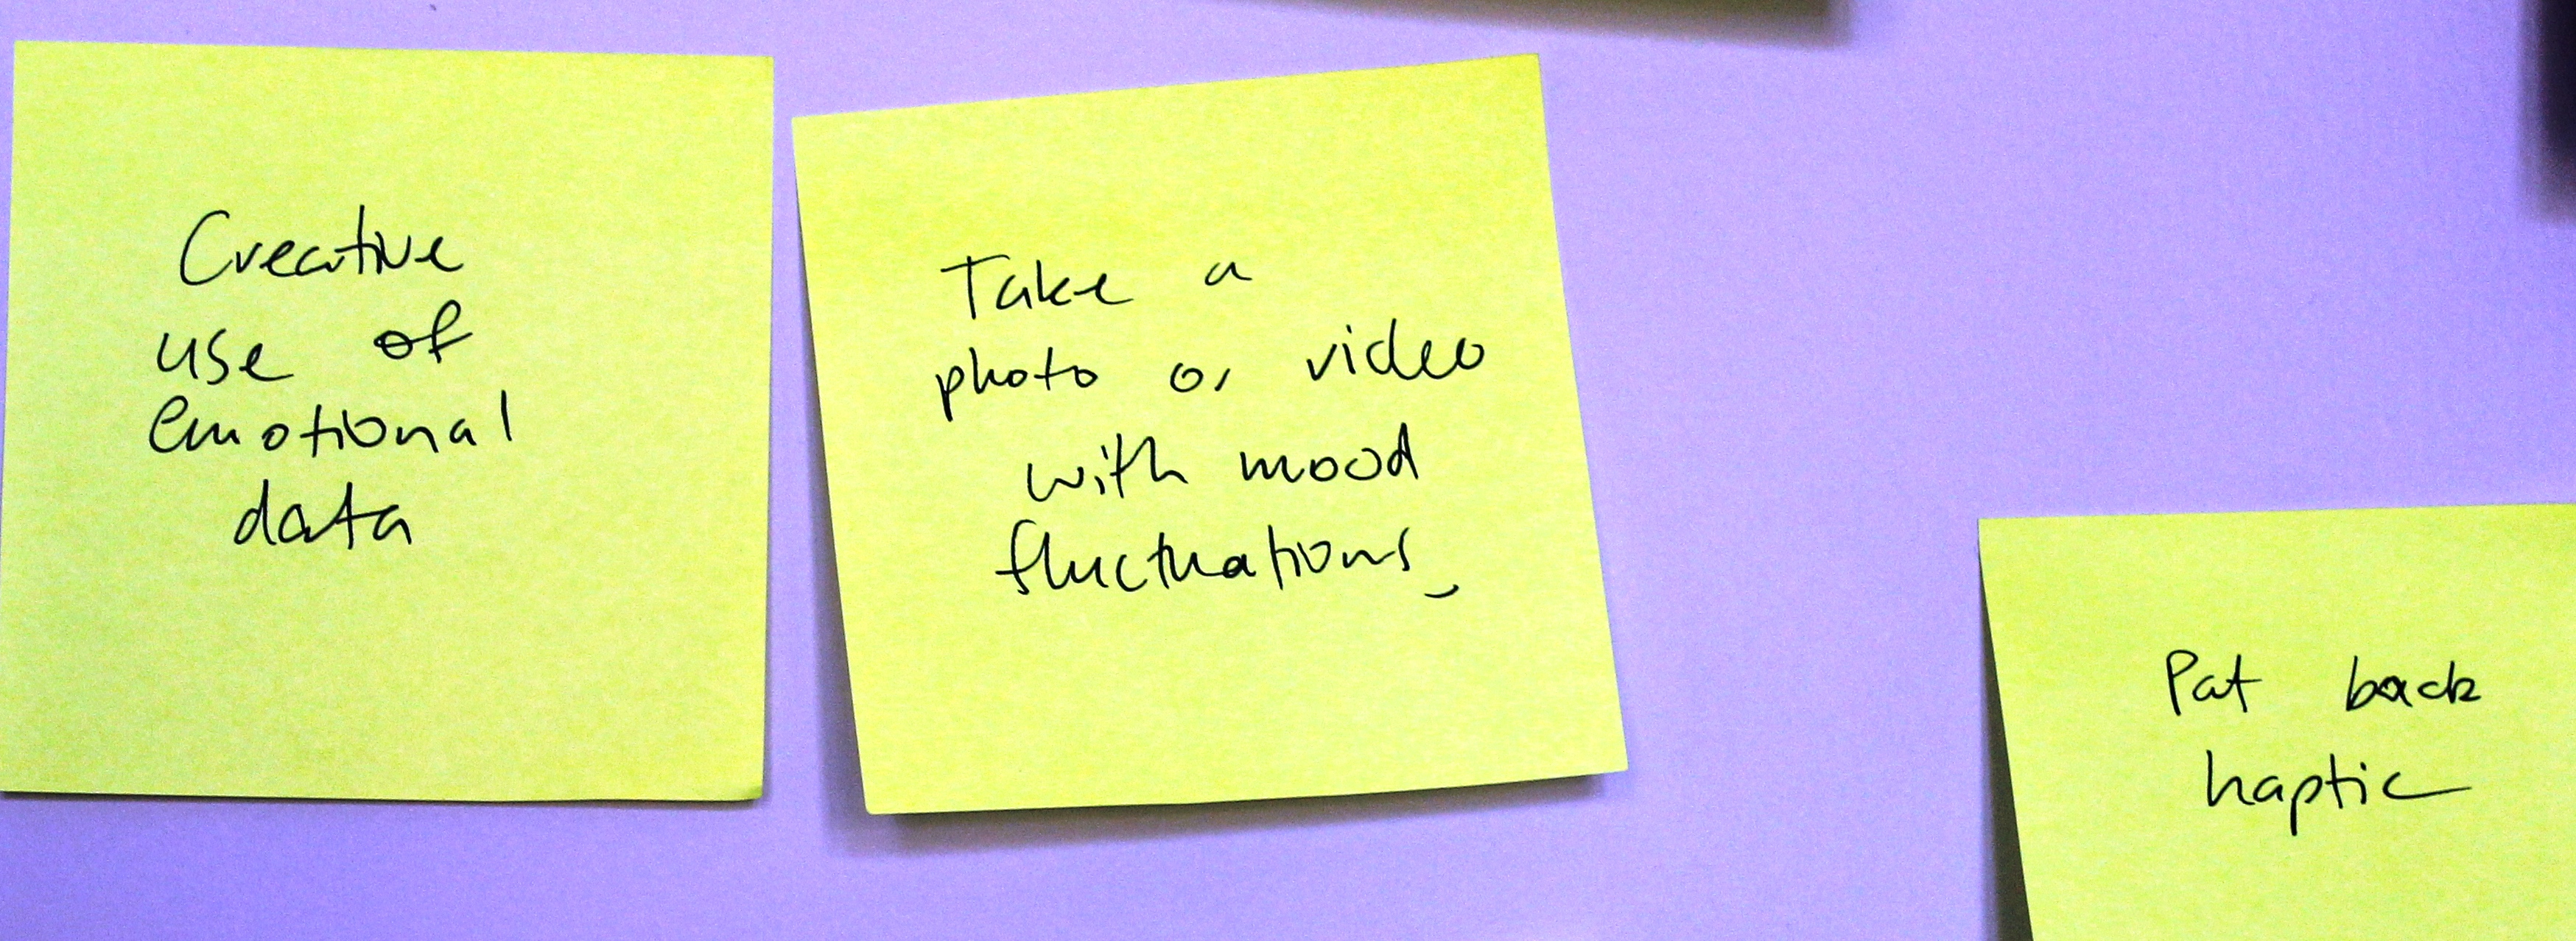 Creative
use of
emotional
data
Take a
photo or video
with mood
fluctuations
Pat back
haptic